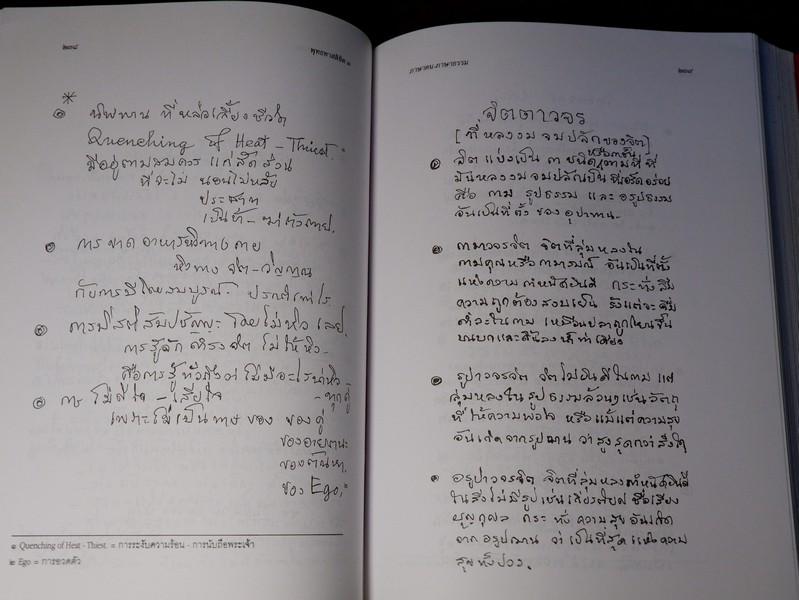 ๒๓๘
พุทธทาสลิขิต ๑
*
๑ นิพพาน ที่ หล่อเลี้ยงชีวิต
Quenching of Heat - Thiest.๑
มีอยู่ตามสมควร แก่สัดส่วน
ที่จะไม่ นอนไม่หลับ
ประสาท
เป็นบ้า - ฆ่าตัวตาย.
๒ การ ขาด อาหารทั้งทาง กาย
ทั้งทาง จิต - วิญญาณ
กับการมีโดยสมบูรณ์.
๓ การมีสติสัมปชัญญะ โดยไม่หวั่น เลย.
การรู้จัก ดำรงจิต ไม่ให้หวั่น.
คือการรู้ทั่วถึงว่า ไม่มีอะไรน่าหวั่น -
๔ การ ไม่ดีใจ - เสียใจ - ทุกคู่
เพราะไม่เป็นทาษ ของ ของคู่
ของอายตนะ
ของตัณหา.
ของ Ego.๒
๑ Quenching of Heat - Thiest. = การระงับความร้อน - การนับถือพระเจ้า
๒ Ego = การอวดตัว
ภาษาคน-ภาษาธรรม
๒๓๙
จิตตาวจร
[ ที่ หลงงมจมปลักของจิต ]
๑ จิต แบ่งเป็น ๓ ชนิด หรือ ๓ ชั้น ตามที่ ที่
มันหลงงมจมปลักเป็น ที่เอร็ดอร่อย
คือ กาม รูปธรรม และ อรูปธรรม
อันเป็นที่ตั้ง ของ อุปาทาน.
๒ กามาวจรจิต จิตที่ลุ่มหลงใน
กามคุณหรือกามารมณ์ อันเป็นที่ตั้ง
แห่งความกำหนัดยินดี กระทั่งถึง
ความถูกต้อง
ในกาม เหมือนปลาถูกโยนขึ้น
บนบกและดิ้นลงน้ำท่าเดียว
๓ รูปาวจรจิต จิตไม่ยินดีในกาม แต่
ลุ่มหลงในรูปธรรมล้วนๆ เช่นวัตถุ
ที่ ให้ความพอใจ หรือแม้แต่ความสุข
อันเกิดจากรูปฌาน ว่าสูงสุดกว่าสิ่งใด
๔ อรูปาวจรจิต จิตที่ลุ่มหลงกำหนัดยินดี
ในสิ่งไม่มีรูป เช่นเกียรติยศ ชื่อเสียง
บุญกุศล กระทั่งความสุขอันเกิด
จาก อรูปฌาน ว่า เป็นที่สุด แห่งความ
สุขทั้งปวง.